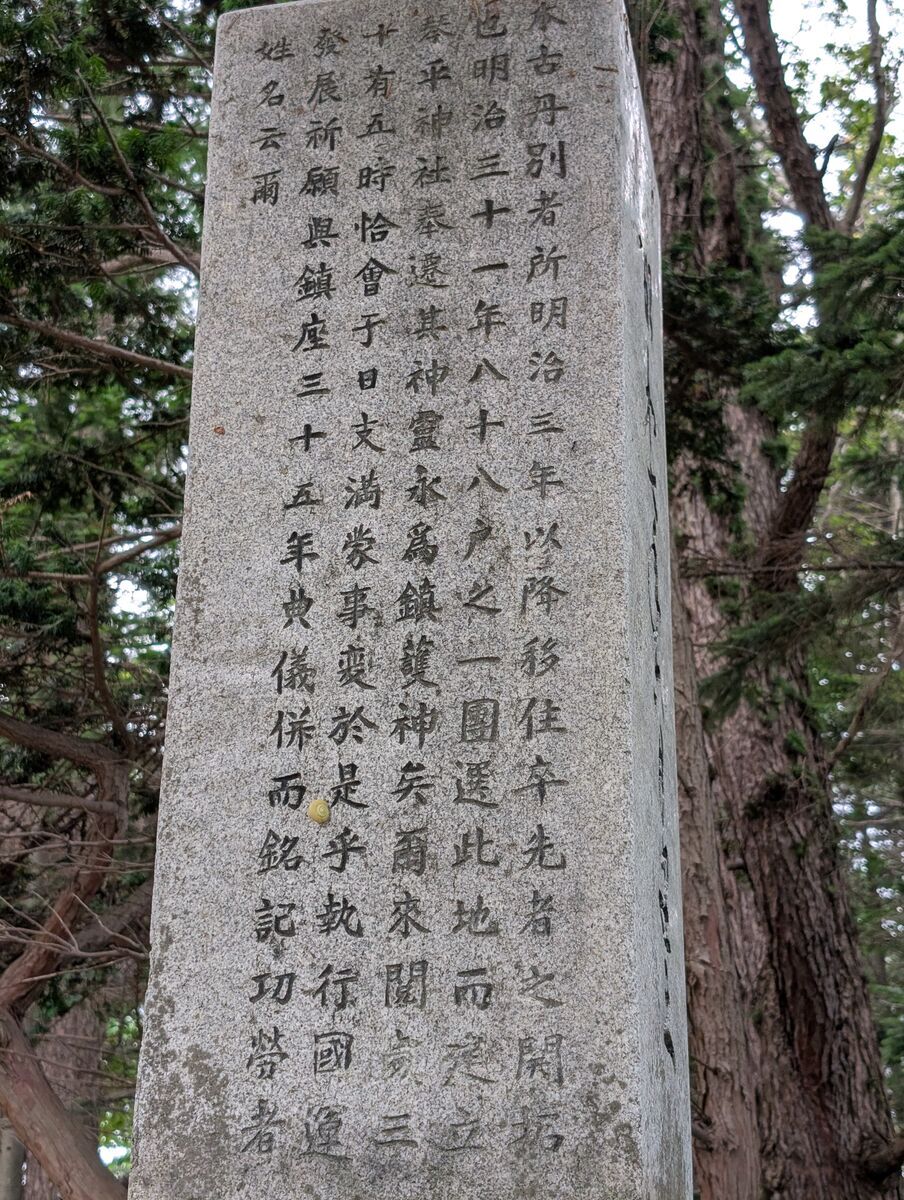 本古丹別者所明治三年以降移住卒先者之開拓
也明治三十一年八十八戸之一團選此地而建立
琴平神社奉遷其神靈永爲鎮護神矣爾來閲年三
十有五時恰會于日支満蒙事変於是乎執行國運
發展祈願與鎮座三十五年典儀併而銘記功勞者
姓名云爾